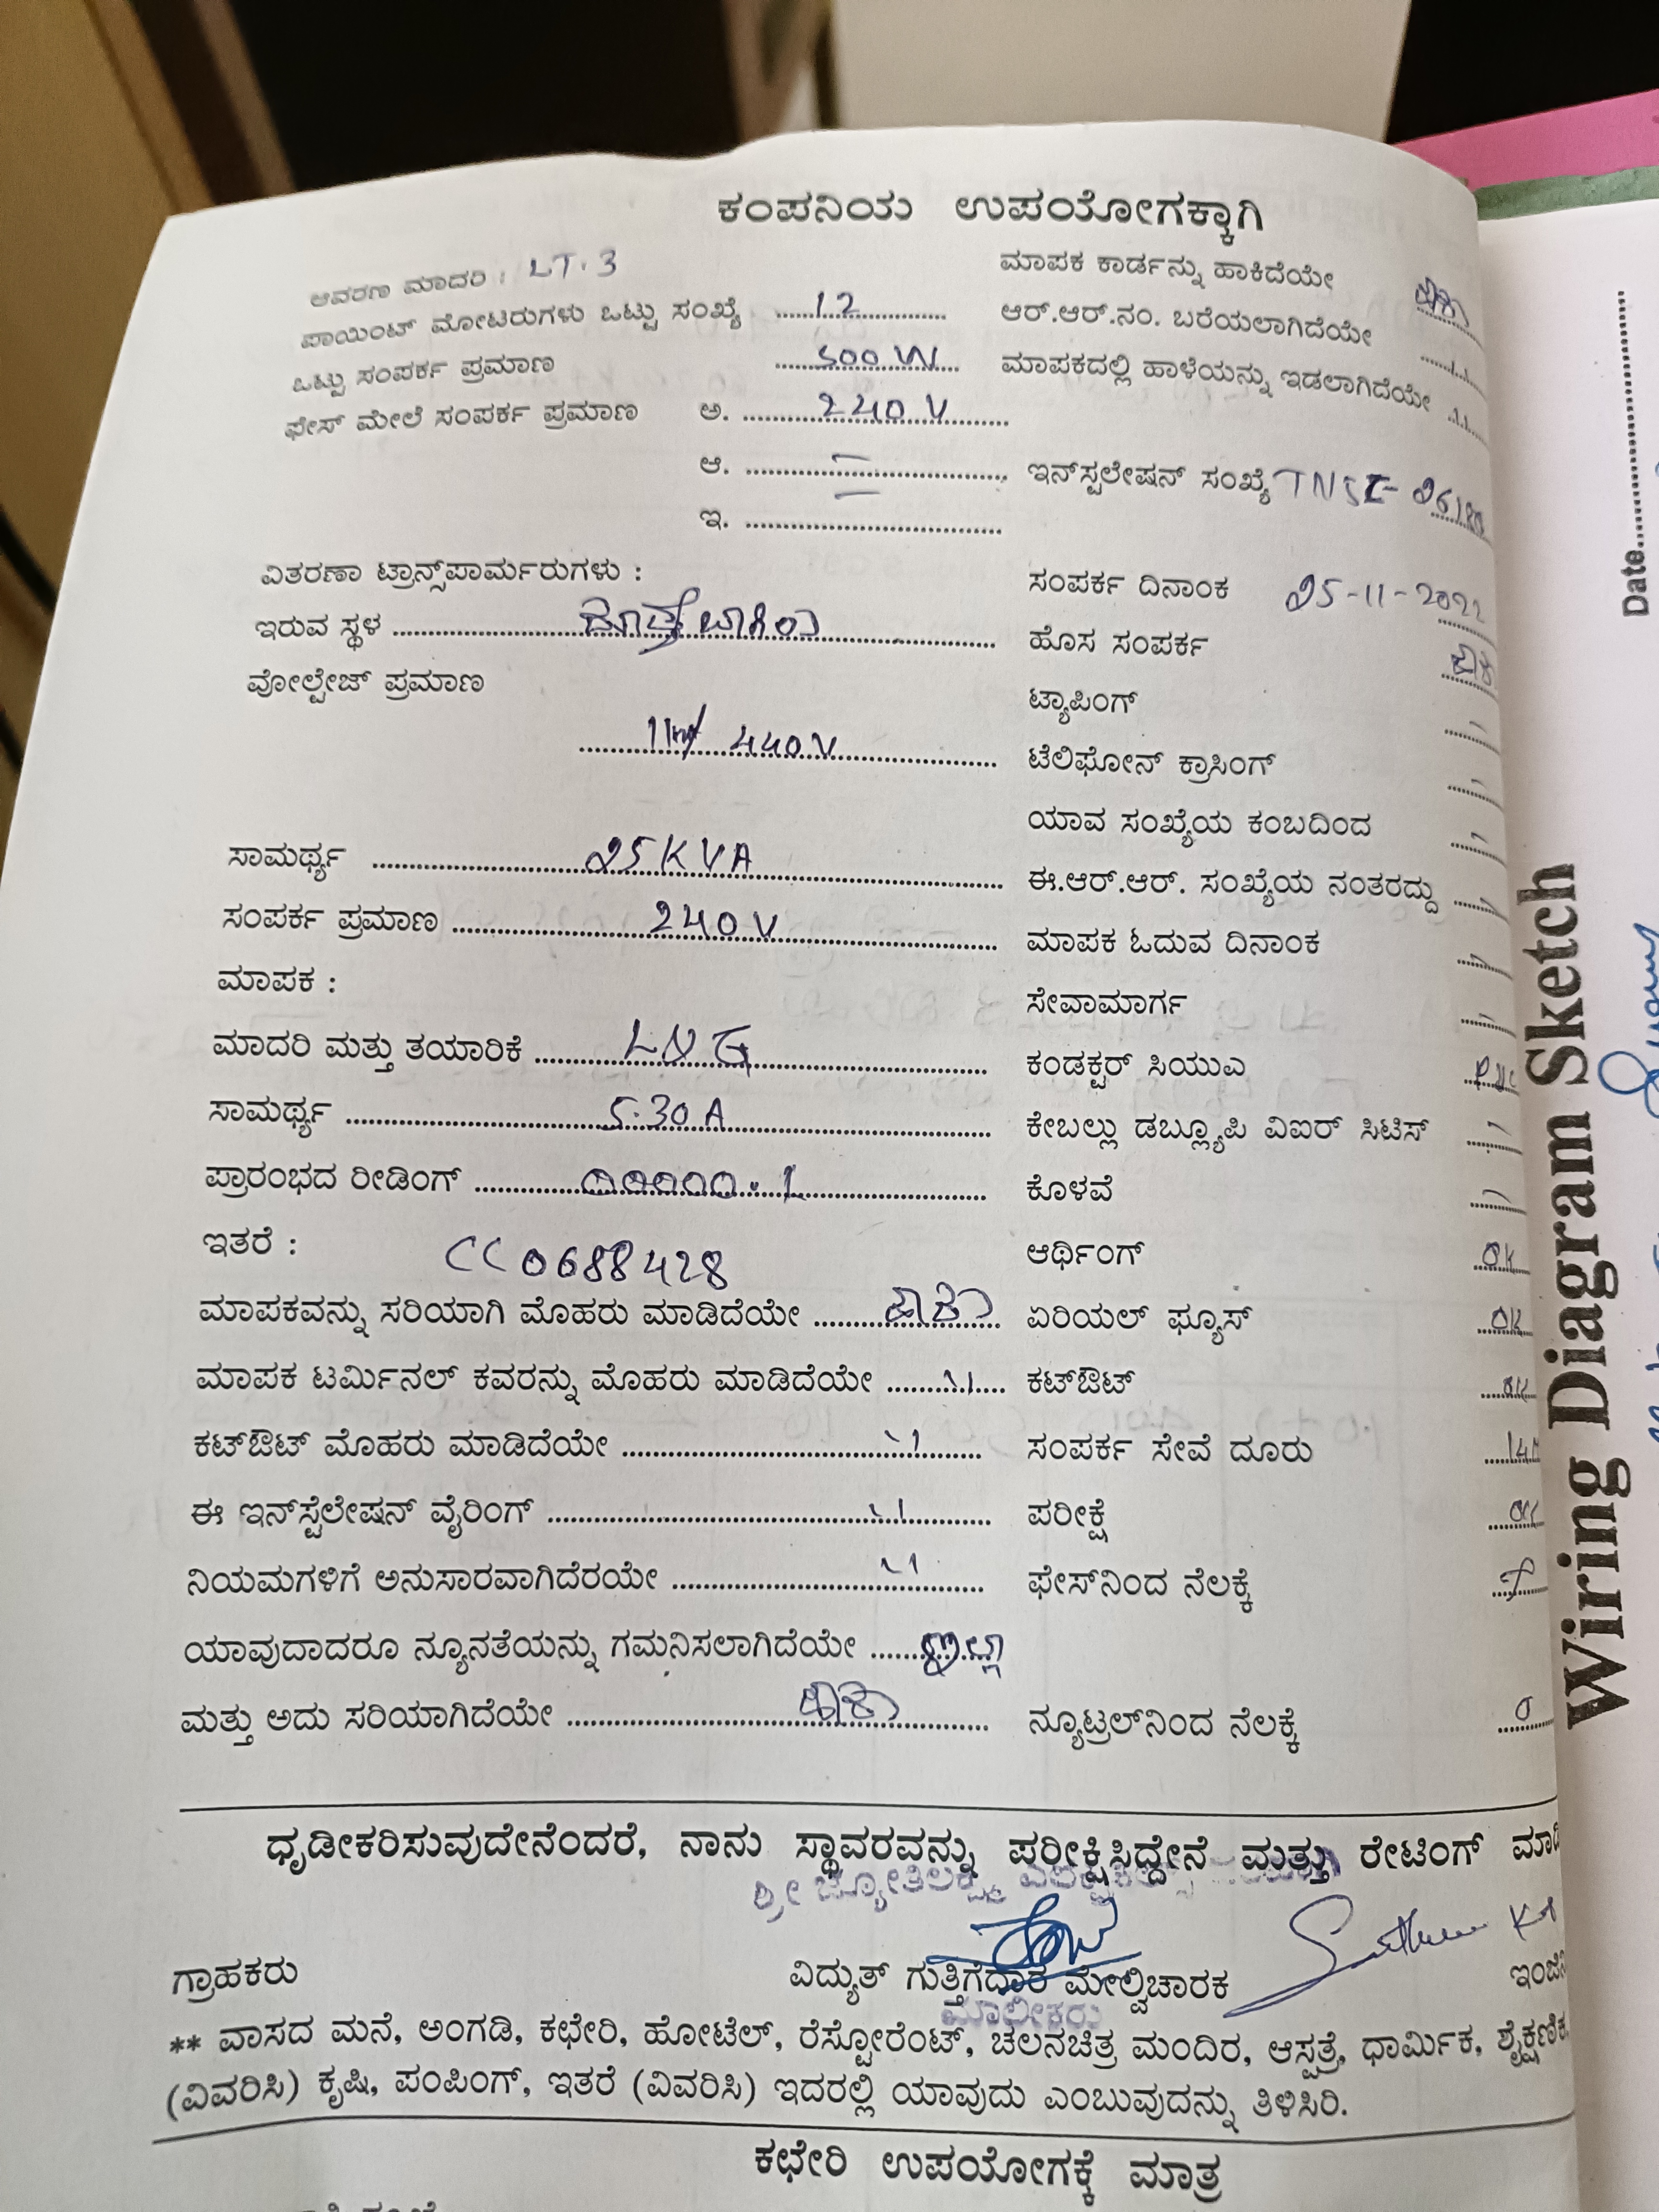 ಕಂಪನಿಯ ಉಪಯೋಗಕ್ಕಾಗಿ
ಆವರಣ ಮಾದರಿ : LT.3
ಪಾಯಿಂಟ್ ಮೋಟರುಗಳು ಒಟ್ಟು ಸಂಖ್ಯೆ ......12......
ಒಟ್ಟು ಸಂಪರ್ಕ ಪ್ರಮಾಣ ......500 W......
ಫೇಸ್ ಮೇಲೆ ಸಂಪರ್ಕ ಪ್ರಮಾಣ ಅ. ......240 V......
ಆ. ......–......
ಇ. ......–......
ವಿತರಣಾ ಟ್ರಾನ್ಸ್‌ಪಾರ್ಮರುಗಳು :
ಇರುವ ಸ್ಥಳ
ವೋಲ್ಟೇಜ್ ಪ್ರಮಾಣ
440V
ಸಾಮರ್ಥ್ಯ ......25 KVA......
ಸಂಪರ್ಕ ಪ್ರಮಾಣ ......240 V......
ಮಾಪಕ :
ಮಾದರಿ ಮತ್ತು ತಯಾರಿಕೆ ......LNG......
ಸಾಮರ್ಥ್ಯ ......5.30 A......
ಪ್ರಾರಂಭದ ರೀಡಿಂಗ್ ......00000.1......
ಇತರೆ : CC0688428
ಮಾಪಕವನ್ನು ಸರಿಯಾಗಿ ಮೊಹರು ಮಾಡಿದೆಯೇ ......ಹೌದು
ಮಾಪಕ ಟರ್ಮಿನಲ್ ಕವರನ್ನು ಮೊಹರು ಮಾಡಿದೆಯೇ ......11......
ಕಟ್‌ಔಟ್ ಮೊಹರು ಮಾಡಿದೆಯೇ ......11......
ಈ ಇನ್‌ಸ್ಟೆಲೇಷನ್ ವೈರಿಂಗ್ ......11......
ನಿಯಮಗಳಿಗೆ ಅನುಸಾರವಾಗಿದೆರಯೇ ......11......
ಯಾವುದಾದರೂ ನ್ಯೂನತೆಯನ್ನು ಗಮನಿಸಲಾಗಿದೆಯೇ ......ಇಲ್ಲ
ಮತ್ತು ಅದು ಸರಿಯಾಗಿದೆಯೇ ......ಹೌದು......
ಮಾಪಕ ಕಾರ್ಡನ್ನು ಹಾಕಿದೆಯೇ ಹೌದು
ಆರ್.ಆರ್.ನಂ. ಬರೆಯಲಾಗಿದೆಯೇ ....11
ಮಾಪಕದಲ್ಲಿ ಹಾಳೆಯನ್ನು ಇಡಲಾಗಿದೆಯೇ ....11
ಇನ್‌ಸ್ಟಲೇಷನ್ ಸಂಖ್ಯೆ
ಸಂಪರ್ಕ ದಿನಾಂಕ 25-11-2022
ಹೊಸ ಸಂಪರ್ಕ ಹೌದು
ಟ್ಯಾಪಿಂಗ್ –
ಟೆಲಿಫೋನ್ ಕ್ರಾಸಿಂಗ್ –
ಯಾವ ಸಂಖ್ಯೆಯ ಕಂಬದಿಂದ –
ಈ.ಆರ್.ಆರ್. ಸಂಖ್ಯೆಯ ನಂತರದ್ದು –
ಮಾಪಕ ಓದುವ ದಿನಾಂಕ –
ಸೇವಾಮಾರ್ಗ –
ಕಂಡಕ್ಟರ್ ಸಿಯುಎ
ಕೇಬಲ್ಲು ಡಬ್ಲ್ಯೂಪಿ ವಿಐರ್ ಸಿಟಿಸ್ –
ಕೊಳವೆ –
ಆರ್ಥಿಂಗ್ OK
ಏರಿಯಲ್ ಫ್ಯೂಸ್ OK
ಕಟ್‌ಔಟ್ OK
ಸಂಪರ್ಕ ಸೇವೆ ದೂರು
ಪರೀಕ್ಷೆ OK
ಫೇಸ್‌ನಿಂದ ನೆಲಕ್ಕೆ
ನ್ಯೂಟ್ರಲ್‌ನಿಂದ ನೆಲಕ್ಕೆ 0
ಧೃಡೀಕರಿಸುವುದೇನೆಂದರೆ, ನಾನು ಸ್ಥಾವರವನ್ನು ಪರೀಕ್ಷಿಸಿದ್ದೇನೆ ಮತ್ತು ರೇಟಿಂಗ್
ಶ್ರೀ ಜ್ಯೋತಿಲಕ್ಷ್ಮಿ
ಗ್ರಾಹಕರು ವಿದ್ಯುತ್ ಗುತ್ತಿಗೆದಾರ ಮೇಲ್ವಿಚಾರಕ
ಮಾಲೀಕರು
** ವಾಸದ ಮನೆ, ಅಂಗಡಿ, ಕಛೇರಿ, ಹೋಟೆಲ್, ರೆಸ್ಟೋರೆಂಟ್, ಚಲನಚಿತ್ರ ಮಂದಿರ, ಆಸ್ಪತ್ರೆ, ಧಾರ್ಮಿಕ, ಶೈಕ್ಷಣಿಕ
(ವಿವರಿಸಿ) ಕೃಷಿ, ಪಂಪಿಂಗ್, ಇತರೆ (ವಿವರಿಸಿ) ಇದರಲ್ಲಿ ಯಾವುದು ಎಂಬುವುದನ್ನು ತಿಳಿಸಿರಿ.
ಕಛೇರಿ ಉಪಯೋಗಕ್ಕೆ ಮಾತ್ರ
Wiring Diagram Sketch
Date............